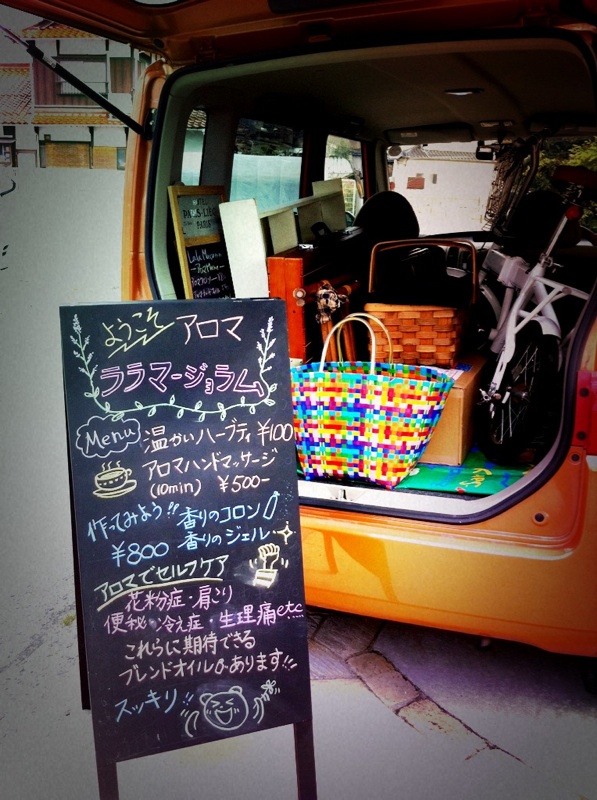 ようこそ アロマ
ララマージョラム
Menu 温かいハーブティ ¥100
アロマハンドマッサージ
(10min) ¥500-
作ってみよう!! 香りのコロン
¥800 香りのジェル
アロマでセルフケア
花粉症・肩こり
便秘・冷え症・生理痛etc
これらに期待できる
ブレンドオイルもあります!!
スッキリ!!
PARIS